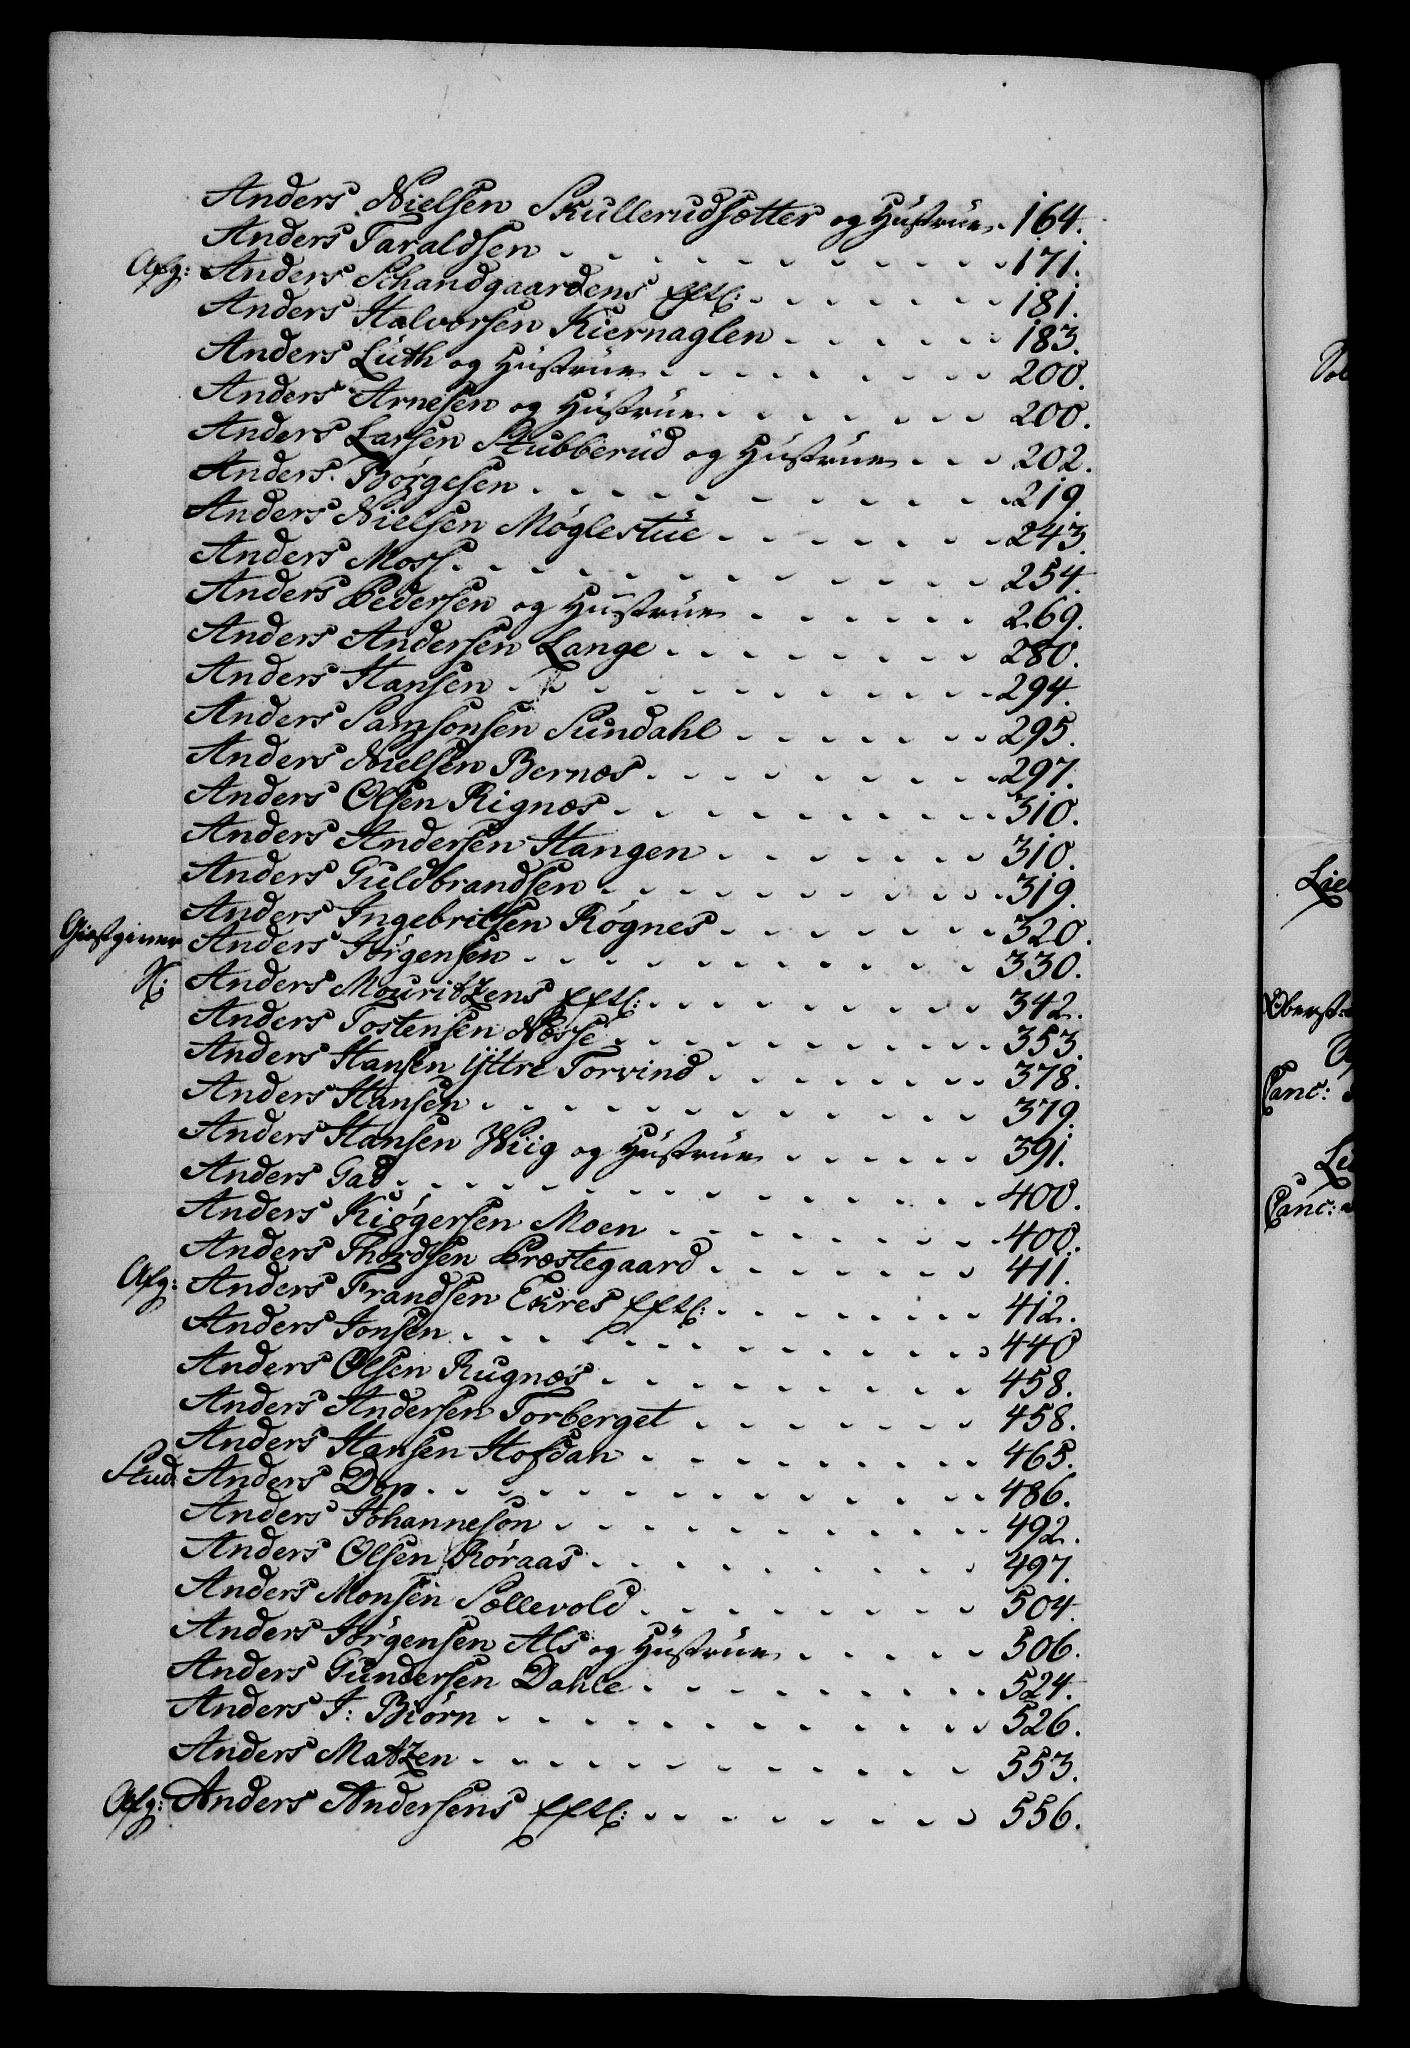 Anders Nielsen Skullerudsætter og Hustrue. 164.
Anders Taraldsen 171.
Afg: Anders Schandgaardens Efftl: 181.
Anders Halvorsen Kiernaglen 183.
Anders Lüth og Hustrue 200.
Anders Arnesen og Hustrue 200.
Anders Larsen Stubberüd og Hustrue 202.
Anders Børgesen 219.
Anders Nielsen Møglestüe 243.
Anders Moss 254.
Anders Pedersen og Hustrue 269.
Anders Andersen Lange 280.
Anders Hansen 294.
Anders Samsonsen Sundahl 295.
Anders Nielsen Bernæs 297.
Anders Olsen Rignæs 310.
Anders Andersen Hangen 310.
Anders Guldbrandsen 319.
Anders Ingebritsen Rognes 320.
Giæstgiver Anders Jørgensen 330.
N: Anders Mouritzens Efftl: 342.
Anders Tostensen Næsse 353.
Anders Hansen Ÿttre Torvind 378.
Anders Hansen 379.
Anders Hansen Wiig og Hustrue 391.
Anders Gad 400.
Anders Kiøgersen Moen 400.
Anders Thordsen Præstegaard 411.
Afg: Anders Frandsen Ekres Efftl: 412.
Anders Jonsen 440
Anders Olsen Rugnæs 458.
Anders Andersen Torberget 458.
Anders Hansen Hofdan 465.
Stud: Anders Dop 486.
Anders Johannesøn 492.
Anders Olsen Røraas 497.
Anders Monsen Sællevold 504.
Anders Jørgensen Als og Hüstrue 506.
Anders Gundersen Dahle 524.
Anders J: Biørn 526.
Anders Matzen 553.
Afg: Anders Andersens Efftl: 556.
Oberst
Canc:
Canc: